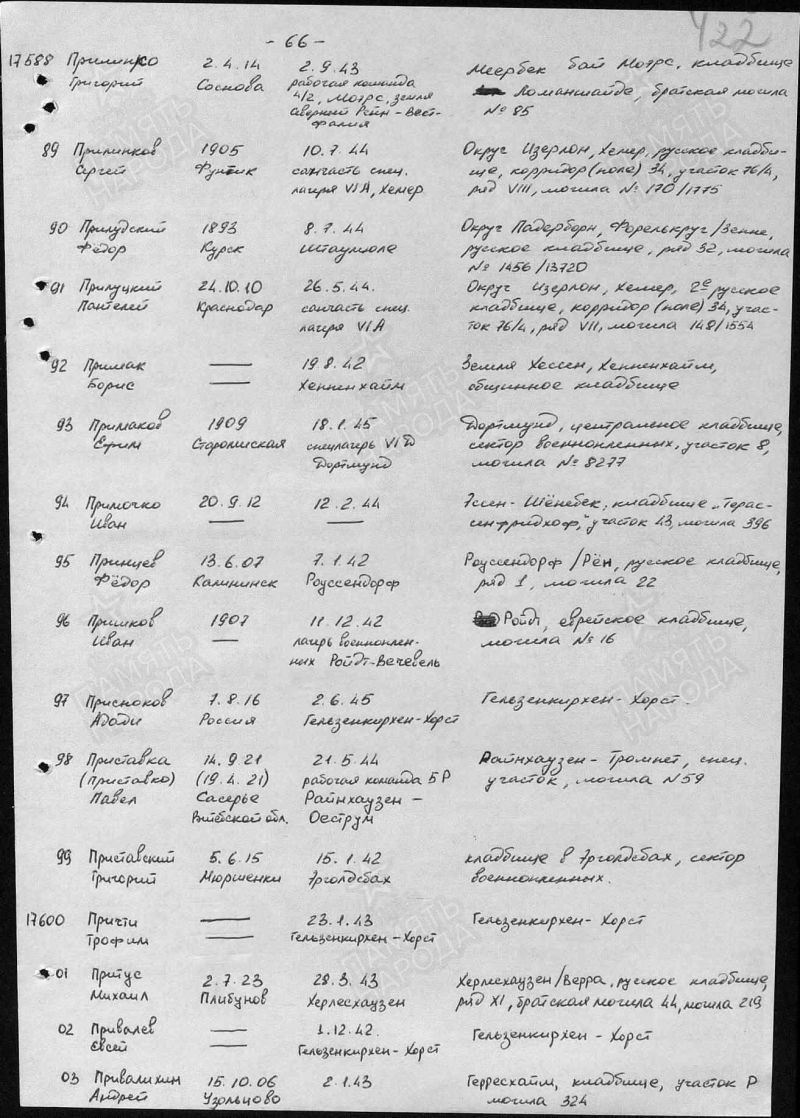 - 66 -
422
17588 Прилипко 2.4.14 2.9.43 Меербек бай Моэрс, кладбище
Григорий Соснова рабочая команда Ломаншайде, братская могила
412, Моэрс, земля № 85
Северный Рейн-Вест-
фалия
89 Прилипков 1905 10.7.44 Округ Изерлон, Хемер, русское кладби-
Сергей Фунтик санчасть спец. ще, корридор (поле) 34, участок 76/4,
лагеря VI A, Хемер ряд VIII, могила № 170/1775
90 Прилудский 1893 8.7.44 Округ Падерборн, Форелькруг/Зенне,
Фёдор Курск Штаумюле русское кладбище, ряд 32, могила
№ 1456/13720
91 Прилуцкий 24.10.10 26.5.44. Округ Изерлон, Хемер, 2е русское
Пантелей Краснодар санчасть спец. кладбище, корридор (поле) 34, учас-
лагеря VI A ток 76/4, ряд VII, могила 148/1554
92 Примак — 19.8.42 Земля Хессен, Хеппенхайм,
Борис — Хеппенхайм общинное кладбище
93 Примаков 1909 18.1.45 Дортмунд, центральное кладбище,
Ефим Староминская спецлагерь VI Д сектор военнопленных, участок 8,
Дортмунд могила № 8277
94 Примочко 20.9.12 12.2.44 Эссен-Шёнебек, кладбище „Терас-
Иван — — сенфридхоф", участок 43, могила 396
95 Принцев 13.6.07 7.1.42 Роуссендорф/Рён, русское кладбище,
Фёдор Калининск Роуссендорф ряд 1, могила 22
96 Припков 1907 11.12.42 Ройдт, еврейское кладбище,
Иван — лагерь военноплен- могила № 16
ных Ройдт-Вечевель
97 Присноков 7.8.16 2.6.45 Гельзенкирхен-Хорст.
Адади Россия Гельзенкирхен-Хорст
98 Приставка 14.9.21 21.5.44 Райнхаузен-Тромпет, спец.
(Приставко) (19.4.21) рабочая команда 5 Р участок, могила N 59
Павел Сасерье Райнхаузен -
Витебской обл. Оеструм
99 Приставский 5.6.15 15.1.42 кладбище в Эрголдсбах, сектор
Григорий Мюршенки Эрголдсбах военнопленных.
17600 Причти — 23.1.43 Гельзенкирхен-Хорст
Трофим — Гельзенкирхен-Хорст
01 Притус 2.7.23 28.3.43 Херлесхаузен/Верра, русское кладбище,
Михаил Плибунов Херлесхаузен ряд XI, братская могила 44, могила 219
02 Привалев — 1.12.42. Гельзенкирхен-Хорст
Евсей — Гельзенкирхен-Хорст
03 Привалихин 15.10.06 2.1.43 Герресхайм, кладбище, участок Р
Андрей Узольцово могила 324
ПАМЯТЬ
НАРОДА